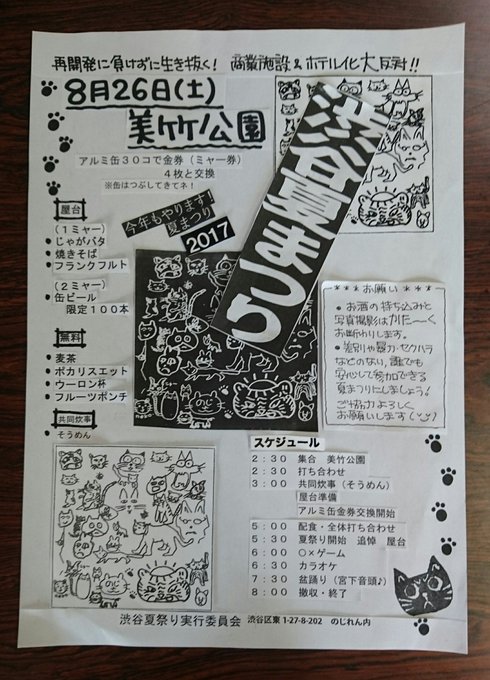 再開発に負けずに生き抜く! 商業施設&ホテル化大反対!!
8月26日(土)
美竹公園
アルミ缶30コで金券(ミャー券)
4枚と交換
※缶はつぶしてきてネ!
渋谷夏まつり
今年もやります!
夏まつり
2017
屋台
(1ミャー)
じゃがバタ
焼きそば
フランクフルト
(2ミャー)
缶ビール
限定100本
無料
麦茶
ポカリスエット
ウーロン杯
フルーツポンチ
共同炊事
そうめん
***お願い***
・お酒の持ち込みと
写真撮影はかた〜く
お断わりします。
・差別や暴力・セクハラ
などのない、誰でも
安心して参加できる
夏まつりにしましょう!
ご協力よろしく
お願いします
スケジュール
2:30 集合 美竹公園
2:30 打ち合わせ
3:00 共同炊事(そうめん)
屋台準備
アルミ缶金券交換開始
5:00 配食・全体打ち合わせ
5:30 夏祭り開始 追悼 屋台
6:00 ○×ゲーム
6:30 カラオケ
7:30 盆踊り(宮下音頭♪)
8:00 撤収・終了
渋谷夏祭り実行委員会 渋谷区東1-27-8-202 のじれん内